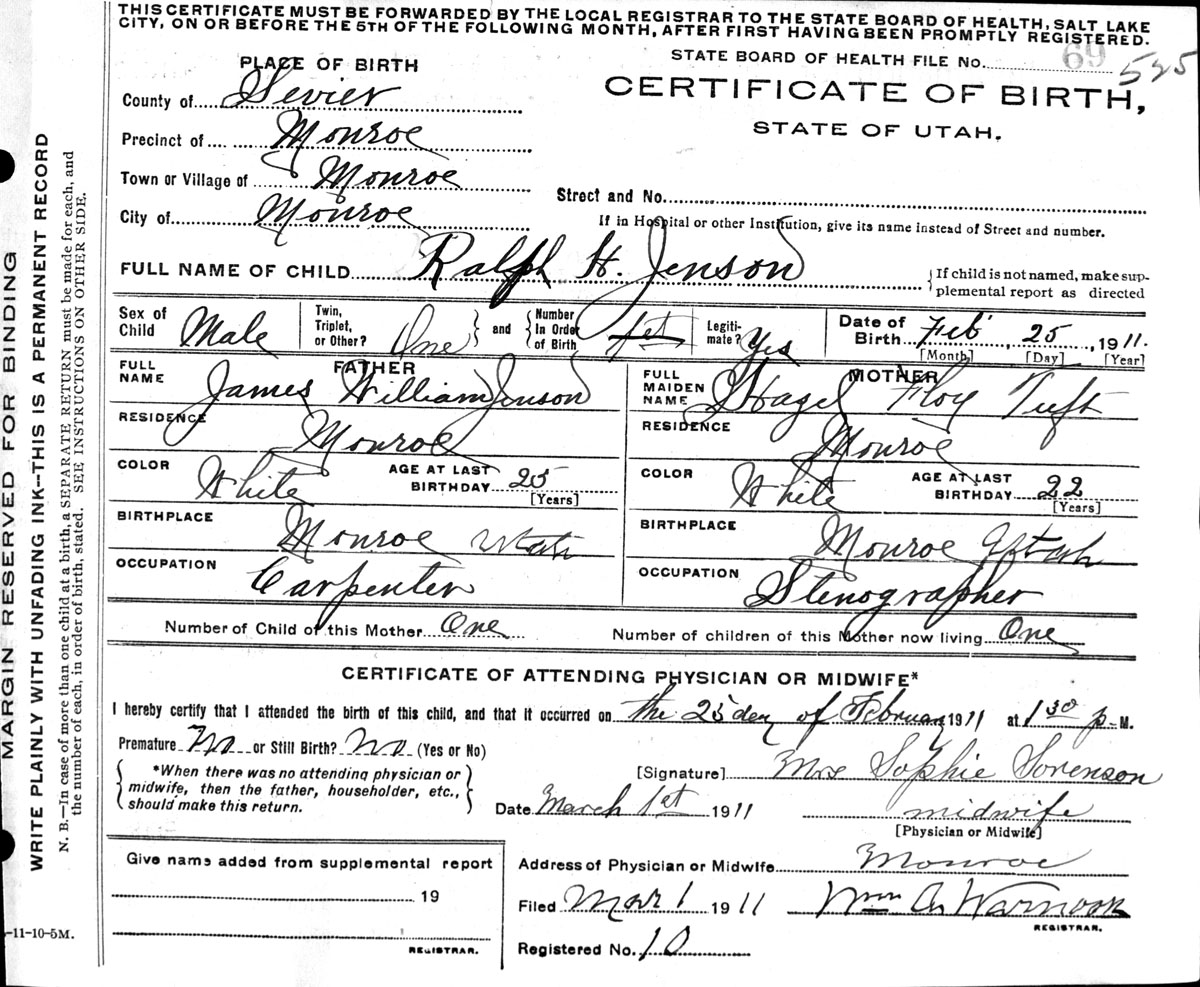 THIS CERTIFICATE MUST BE FORWARDED BY THE LOCAL REGISTRAR TO THE STATE BOARD OF HEALTH, SALT LAKE
CITY, ON OR BEFORE THE 5TH OF THE FOLLOWING MONTH, AFTER FIRST HAVING BEEN PROMPTLY REGISTERED.
STATE BOARD OF HEALTH FILE No. 69 525
PLACE OF BIRTH
CERTIFICATE OF BIRTH,
STATE OF UTAH.
County of Sevier
Precinct of Monroe
Town or Village of Monroe
Street and No.
City of Monroe
If in Hospital or other Institution, give its name instead of Street and number.
FULL NAME OF CHILD Ralph H. Jenson
If child is not named, make sup-
plemental report as directed
Sex of Child Male
Twin, Triplet, or Other? One
and Number In Order of Birth 1st
Legiti-mate? Yes
Date of Birth Feb 25, 1911.
[Month] [Day] [Year]
FATHER
FULL NAME James William Jenson
RESIDENCE Monroe
COLOR White AGE AT LAST BIRTHDAY 25
[Years]
BIRTHPLACE Monroe Utah
OCCUPATION Carpenter
MOTHER
FULL MAIDEN NAME Hazel Floy Tuft
RESIDENCE Monroe
COLOR White AGE AT LAST BIRTHDAY 22
[Years]
BIRTHPLACE Monroe Utah
OCCUPATION Stenographer
Number of Child of this Mother One Number of children of this Mother now living One
CERTIFICATE OF ATTENDING PHYSICIAN OR MIDWIFE*
I hereby certify that I attended the birth of this child, and that it occurred on the 25 day of February 1911 at 1 30 P-M.
Premature No or Still Birth? No (Yes or No)
*When there was no attending physician or
midwife, then the father, householder, etc.,
should make this return.
[Signature] Mrs Sophie Sorenson
Date March 1st 1911 midwife
[Physician or Midwife]
Give name added from supplemental report
19
REGISTRAR.
Address of Physician or Midwife Monroe
Filed Mar 1 1911 Wm A Warnock
REGISTRAR.
Registered No. 10
MARGIN RESERVED FOR BINDING
WRITE PLAINLY WITH UNFADING INK--THIS IS A PERMANENT RECORD
N. B.—In case of more than one child at a birth, a SEPARATE RETURN must be made for each, and
the number of each, in order of birth, stated. SEE INSTRUCTIONS ON OTHER SIDE.
-11-10-5M.